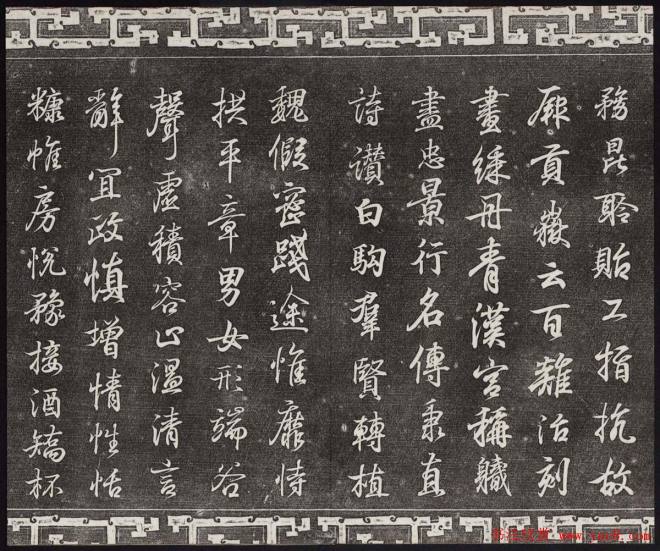 務昆聆貽工指抗故
厥貢云百治刻
畫綵丹青漢宮稱軄
盡忠景行名傳秉直
詩讃白駒羣賢轉植
魏假密踐途惟靡恃
拱平章男女形端谷
聲虛積容止溫清言
辭宜政慎增情性恬
糠帷房悅豫接酒矯杯
书法欣赏 www.yac8.com